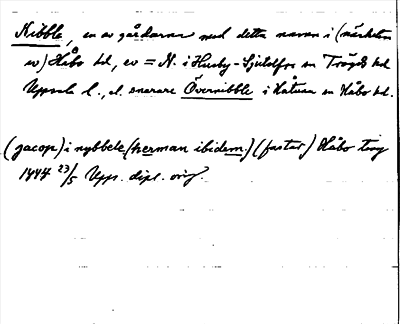 Nibble, en av gårdarna med detta namn i (närheten
av) Håbo hd, ev = N. i Husby-Sjutolfts sn Trögds hd
Uppsala l., el. snarare Övernibble i Håtuna sn Håbo hd.
(jacop) i nybbele (herman ibidem) (fastar) Håbo ting
1447 23/5 Upps. dipl. orig.